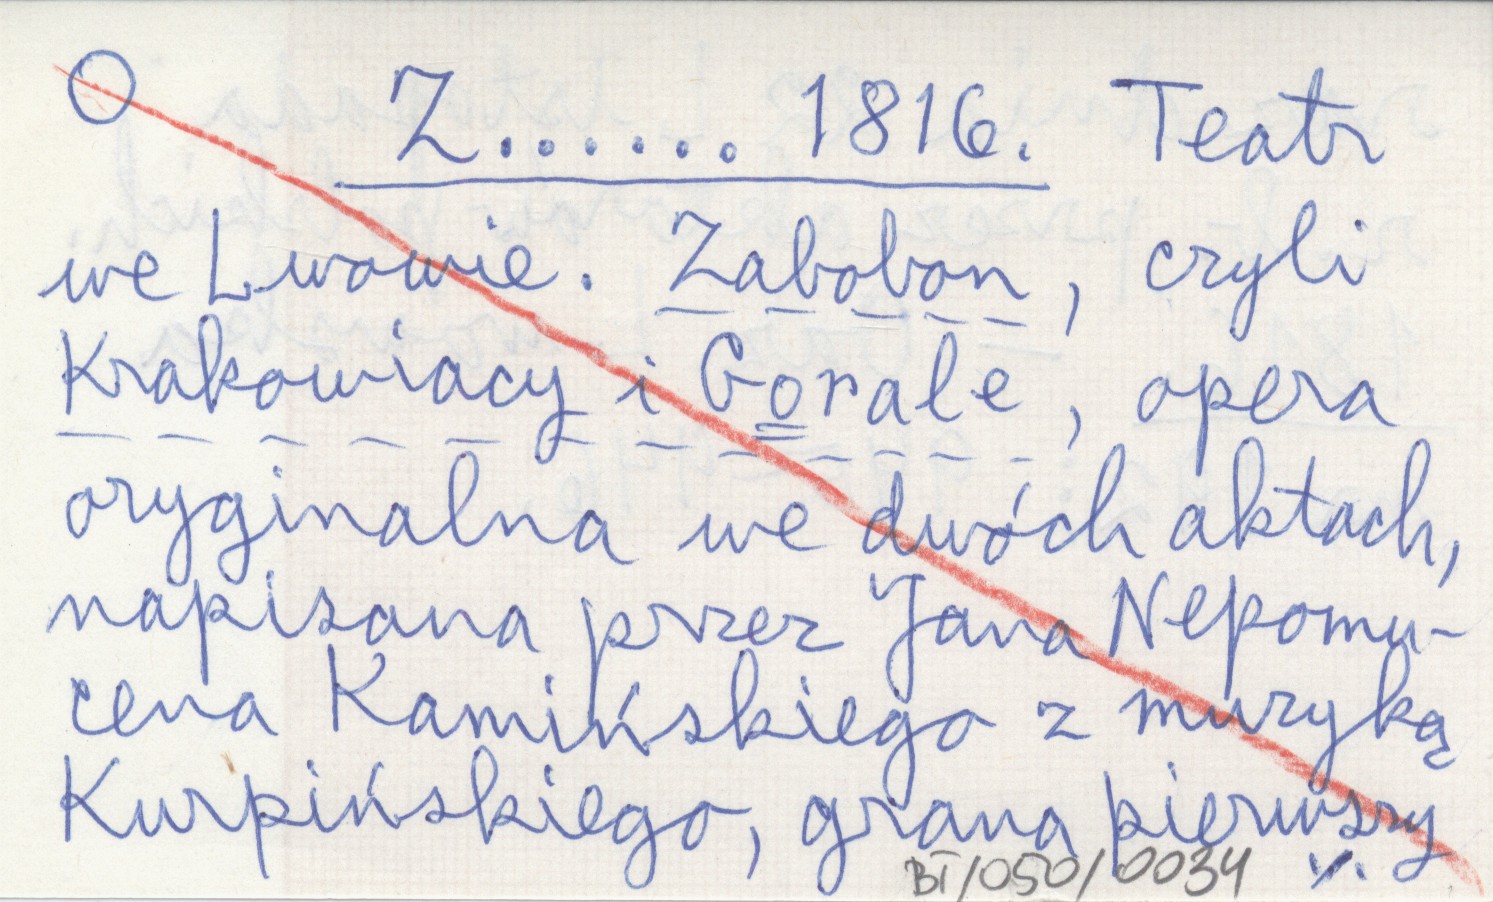 Z....... 1816. Teatr
we Lwowie. Zabobon, czyli
Krakowiacy i Gorale, opera
oryginalna we dwóch aktach,
napisana przez Jana Nepomu-
cena Kamińskiego z muzyką
Kurpińskiego, grana pierwszy
BT/050/0034